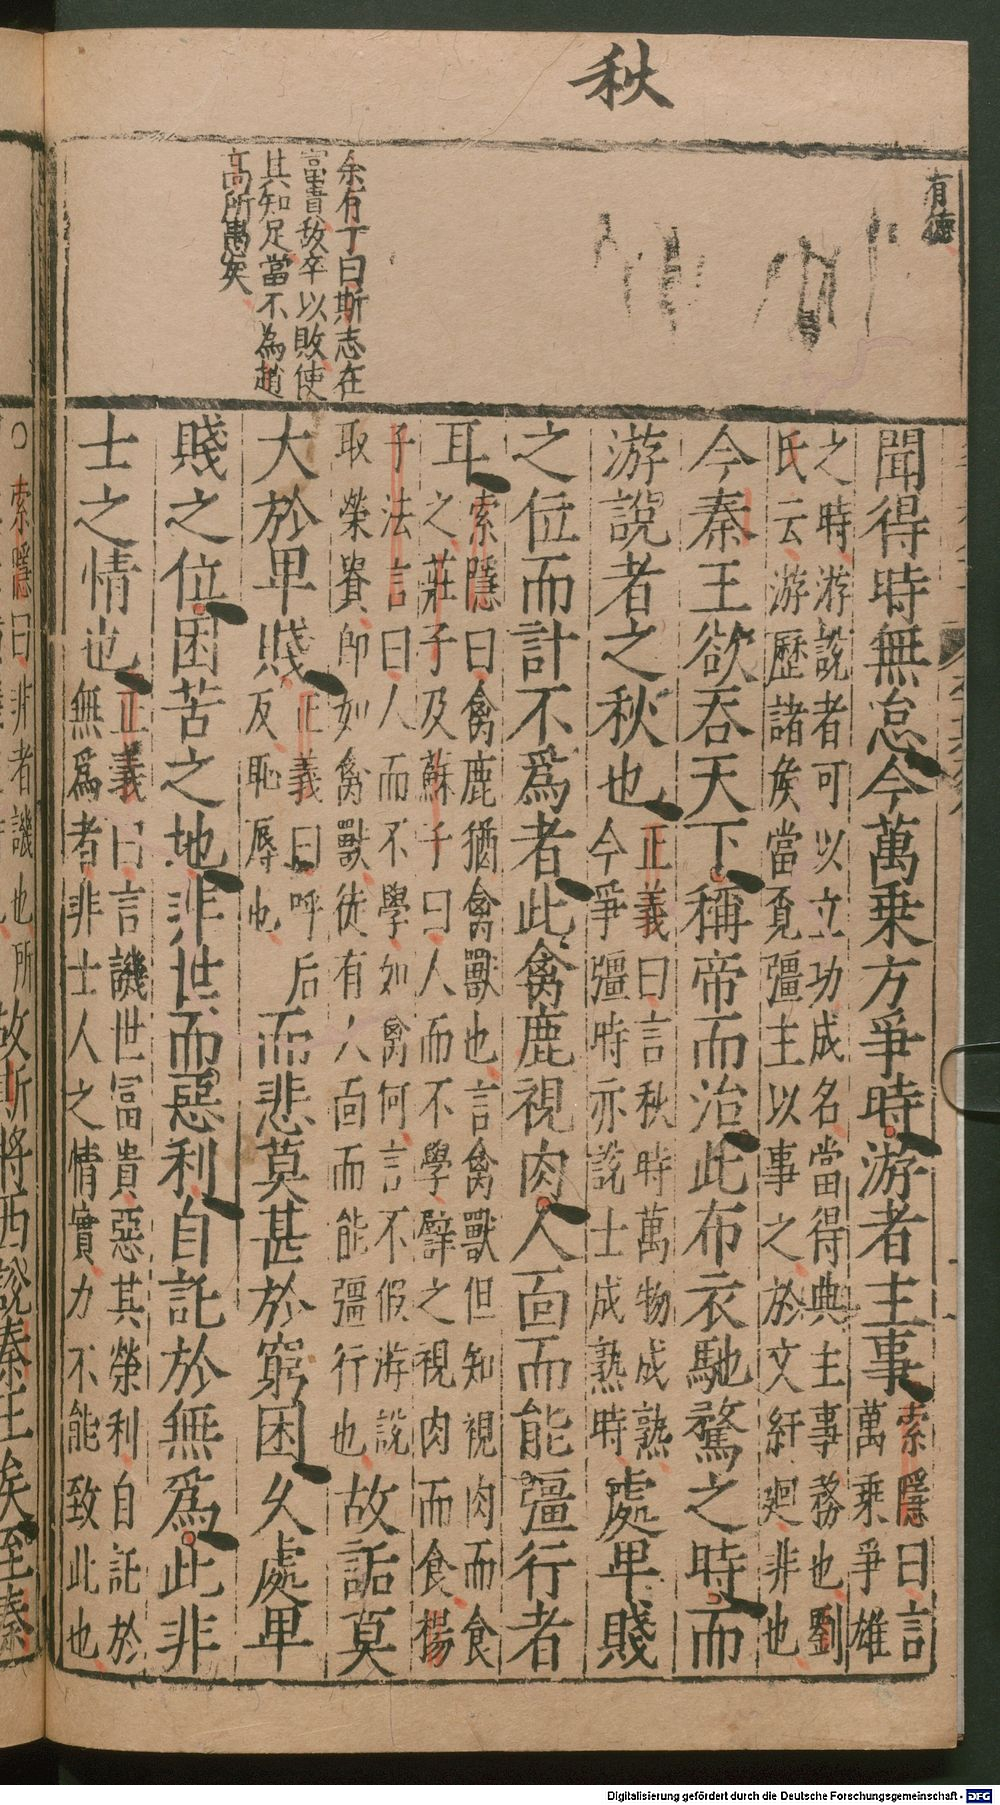 秋
有德
余有丁曰斯志在
富貴故卒以敗使
其知足當不為趙
高所愚矣
聞得時無怠今萬乗方爭時游者主事索隱曰言
萬乗爭雄
之時游說者可以立功成名當得典主事務也劉
氏云游歷諸侯當覓彊主以事之於文紆廻非也
今秦王欲吞天下稱帝而治此布衣馳騖之時而
游說者之秋也正義曰言秋時萬物成熟
今爭彊時亦說士成熟時處卑賤
之位而計不爲者此禽鹿視肉人面而能彊行者
耳索隱曰禽鹿猶禽獸也言禽獸但知視肉而食
之莊子及蘇子曰人而不學譬之視肉而食楊
子法言曰人而不學如禽何言不假游說
取榮貴即如禽獸徒有人面而能彊行也故詬莫
大於卑賤正義曰呼后
反恥辱也而悲莫甚於窮困久處卑
賤之位困苦之地非世而惡利自託於無爲此非
士之情也正義曰言譏世富貴惡其榮利自託於
無爲者非士人之情實力不能致此也
○索隱曰非者譏也所
故斯將西說秦王矣至秦
Digitalisierung gefördert durch die Deutsche Forschungsgemeinschaft - DFG